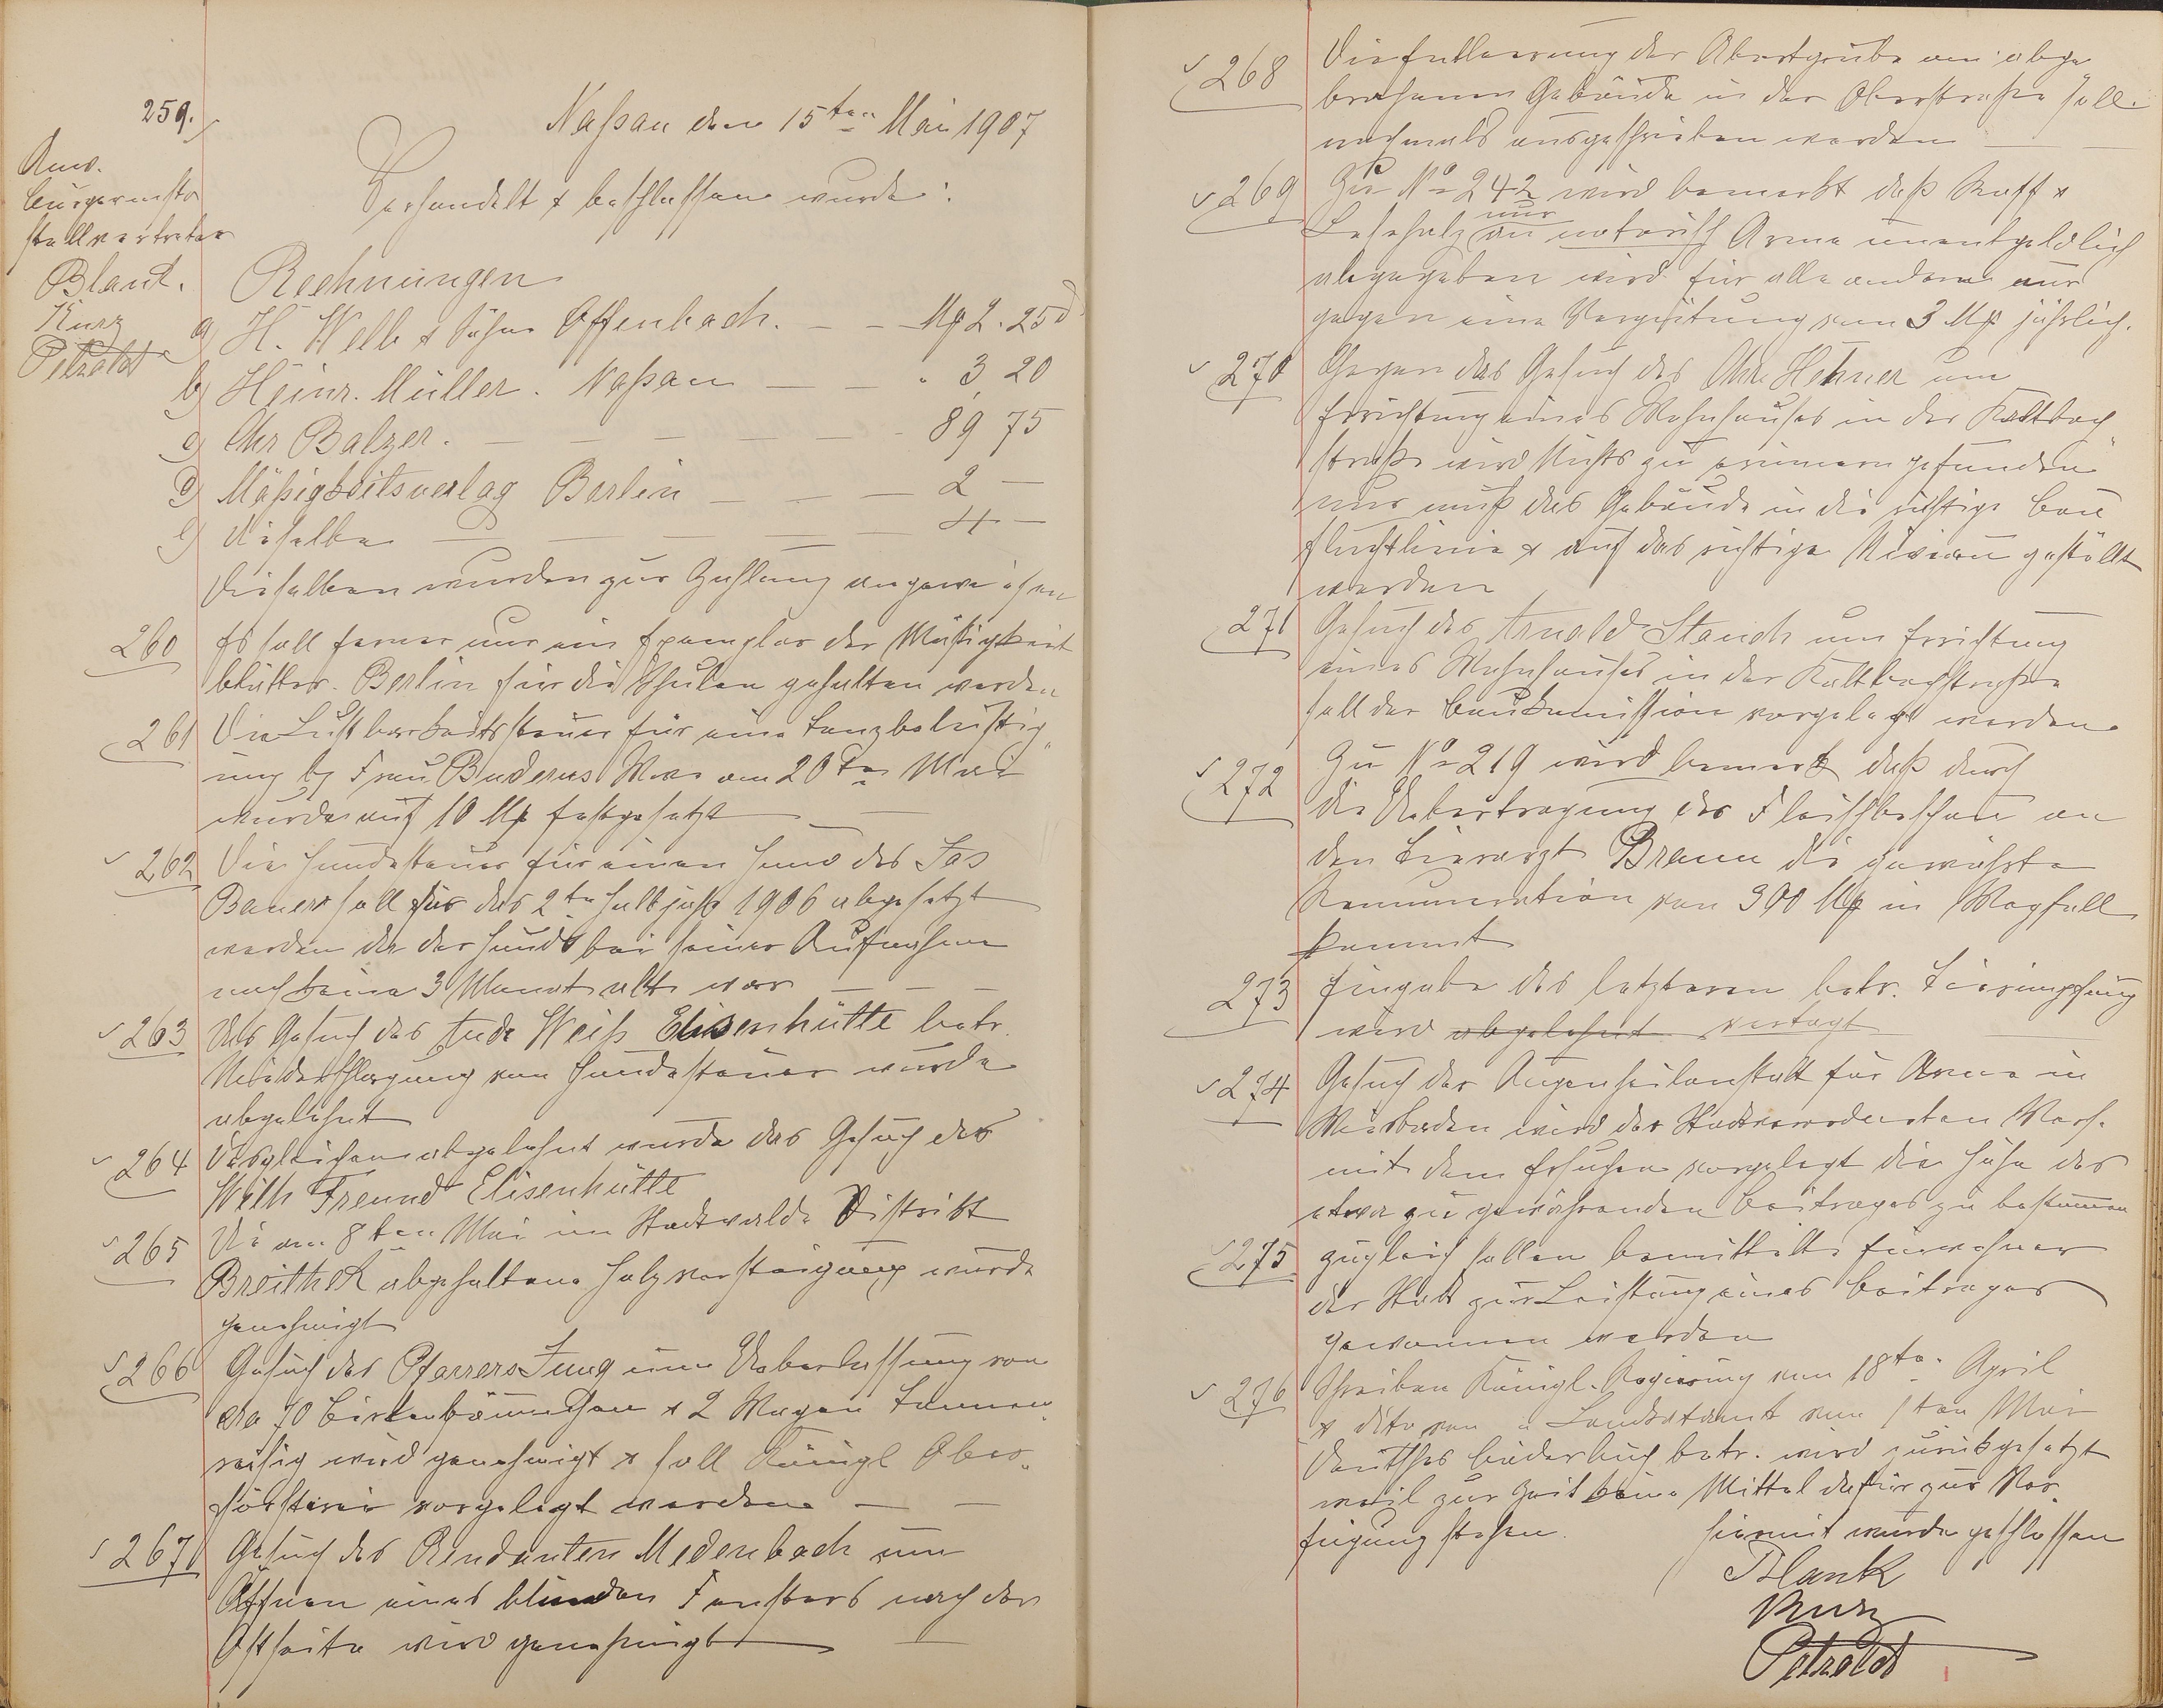 259.
Naßau den 15ten Mai 1907
Anw.
Bürgermstr
stellvertreter
Blank.
Kurz
Petzoldt
Verhandelt & beschlossen wurde:
Rechnungen
a) H. Welb & Söhne Offenbach. — — Mk 2.25 d
b) Heinr. Müller. Naßau — — " 3 20
c) Chr Balzer. — — — — — 89 75
d) Mäßigkeitsverlag Berlin — — — 2 —
e) Dieselbe — — — — — 4 —
Dieselben wurden zur Zahlung angewiesen
260 Es soll ferner nur ein Exemplar der Mäßigkeit
blätter. Berlin für die Schulen gehalten werden
261 Die Lustbarkeitssteuer für eine Tanzbelustig
ung bei Frau Buderus Wwe am 20ten Mai
wurde auf 10 Mk festgesetzt
262 Die Hundesteuer für einen Hund des Jas
Bauer soll für das 2te Halbjahr 1906 abgesetzt
werden da der Hund bei seiner Aufnahme
noch keine 3 Monat alt war — — —
263 Das Gesuch des Weiß Elisenhütte betr.
Niederschlagung von Hundesteuer wurde
abgelehnt
264 Desgleichen abgelehnt wurde das Gesuch des
Wilh Freund Elisenhütte
265 Die am 8ten Mai im Stadtwalde Distrikt
Breitheck abgehaltene Holzversteigerung wurde
genehmigt
266 Gesuch des Pfarrers Jung um Ueberlassung von
ca 70 Birkenbäumchen & 2 Wagen Tannen
reisig wird genehmigt & soll Königl Ober-
försterei vorgelegt werden — —
267 Gesuch des Rendanten Medenbach um
Öffnen eines blinden Fensters nach der
Ostseite wird genehmigt —
268 Die Entleerung der Abortgrube am abge
brochenen Gebäude in der Oberstraße soll
nochmals ausgeschrieben werden — —
269 Zu No 242 wird bemerkt daß Raff &
Leseholz nur an notorisch Arme unentgeldlich
abgegeben wird für alle anderen nur
gegen eine Vergütung von 3 Mk jährlich.
270 Gegen das Gesuch des Chr. Hehner um
Errichtung eines Wohnhauses in der Kaltbach
straße wird Nichts zu erinnern gefunden
nur muß das Gebäude in die richtige Bau
fluchtlinie & auf das richtige Niveau gestellt
werden
271 Gesuch des Arnold Stauch um Errichtung
eines Wohnhauses in der Kaltbachstraße
soll der Baukommission vorgelegt werden
272 Zu No 219 wird bemerkt daß durch
die Uebertragung der Fleischbeschau an
den Tierarzt Braun die gewährte
Remuneration von 300 Mk in Wegfall
kommt
273 Eingabe des letzteren betr. Tierimpfung
wird abgelehnt vertagt
274 Gesuch der Augenheilanstalt für Arme in
Wiesbaden wird der Stadtverordneten Vers.
mit dem Ersuchen vorgelegt die Höhe des
etwa zu gewährenden Beitrages zu bestimmen
275 zugleich sollen bemittelte Einwohner
der Stadt zur Leistung eines Beitrages
gewonnen werden
276 Schreiben Königl. Regierung vom 18te. April
& dito vom " Landratamt vom 1ten Mai
Deutsches Bäderbuch betr. wird zurückgesetzt
weil zur Zeit keine Mittel dafür zur Ver
fügung stehen. Hiermit wurde geschlossen
Blank
Kurz
Petzoldt